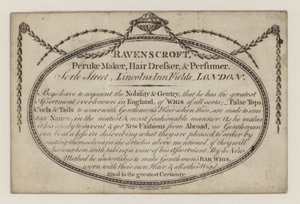 RAVENSCROFT,
Peruke Maker, Hair Dresser, & Perfumer.
Serle Street, Lincolns Inn Fields, LONDON.
Begs leave to acquaint the Nobility & Gentry, that he has the greatest
Assortment ever shewn in England, of WIGS of all sorts; False Tops,
Curls & Tails to wear with Gentlemens Hair when thin, are made to imi
tate Nature, in the neatest & most fashionable manner. As he makes
it his study to invent & get New Fashions from Abroad, no Gentleman
can be at a loss in describing what they are pleased to order by
suiting themselves in the articles above mentioned if they will
Method he undertakes to make Gentlemen's BAR WIGS,
worn with their own Hair & all other Wigs
fitted to the greatest Certainty.